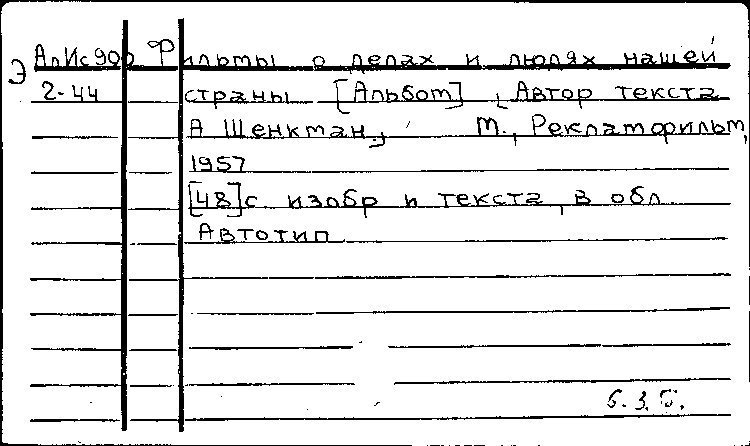 Э АлИс900 Фильмы о делах и людях нашей
2-44 страны [Альбом] Автор текста
А Шенкман, М., Рекламфильм,
1957
[48]с изобр и текста, в обл
Автотип
б.з.б.